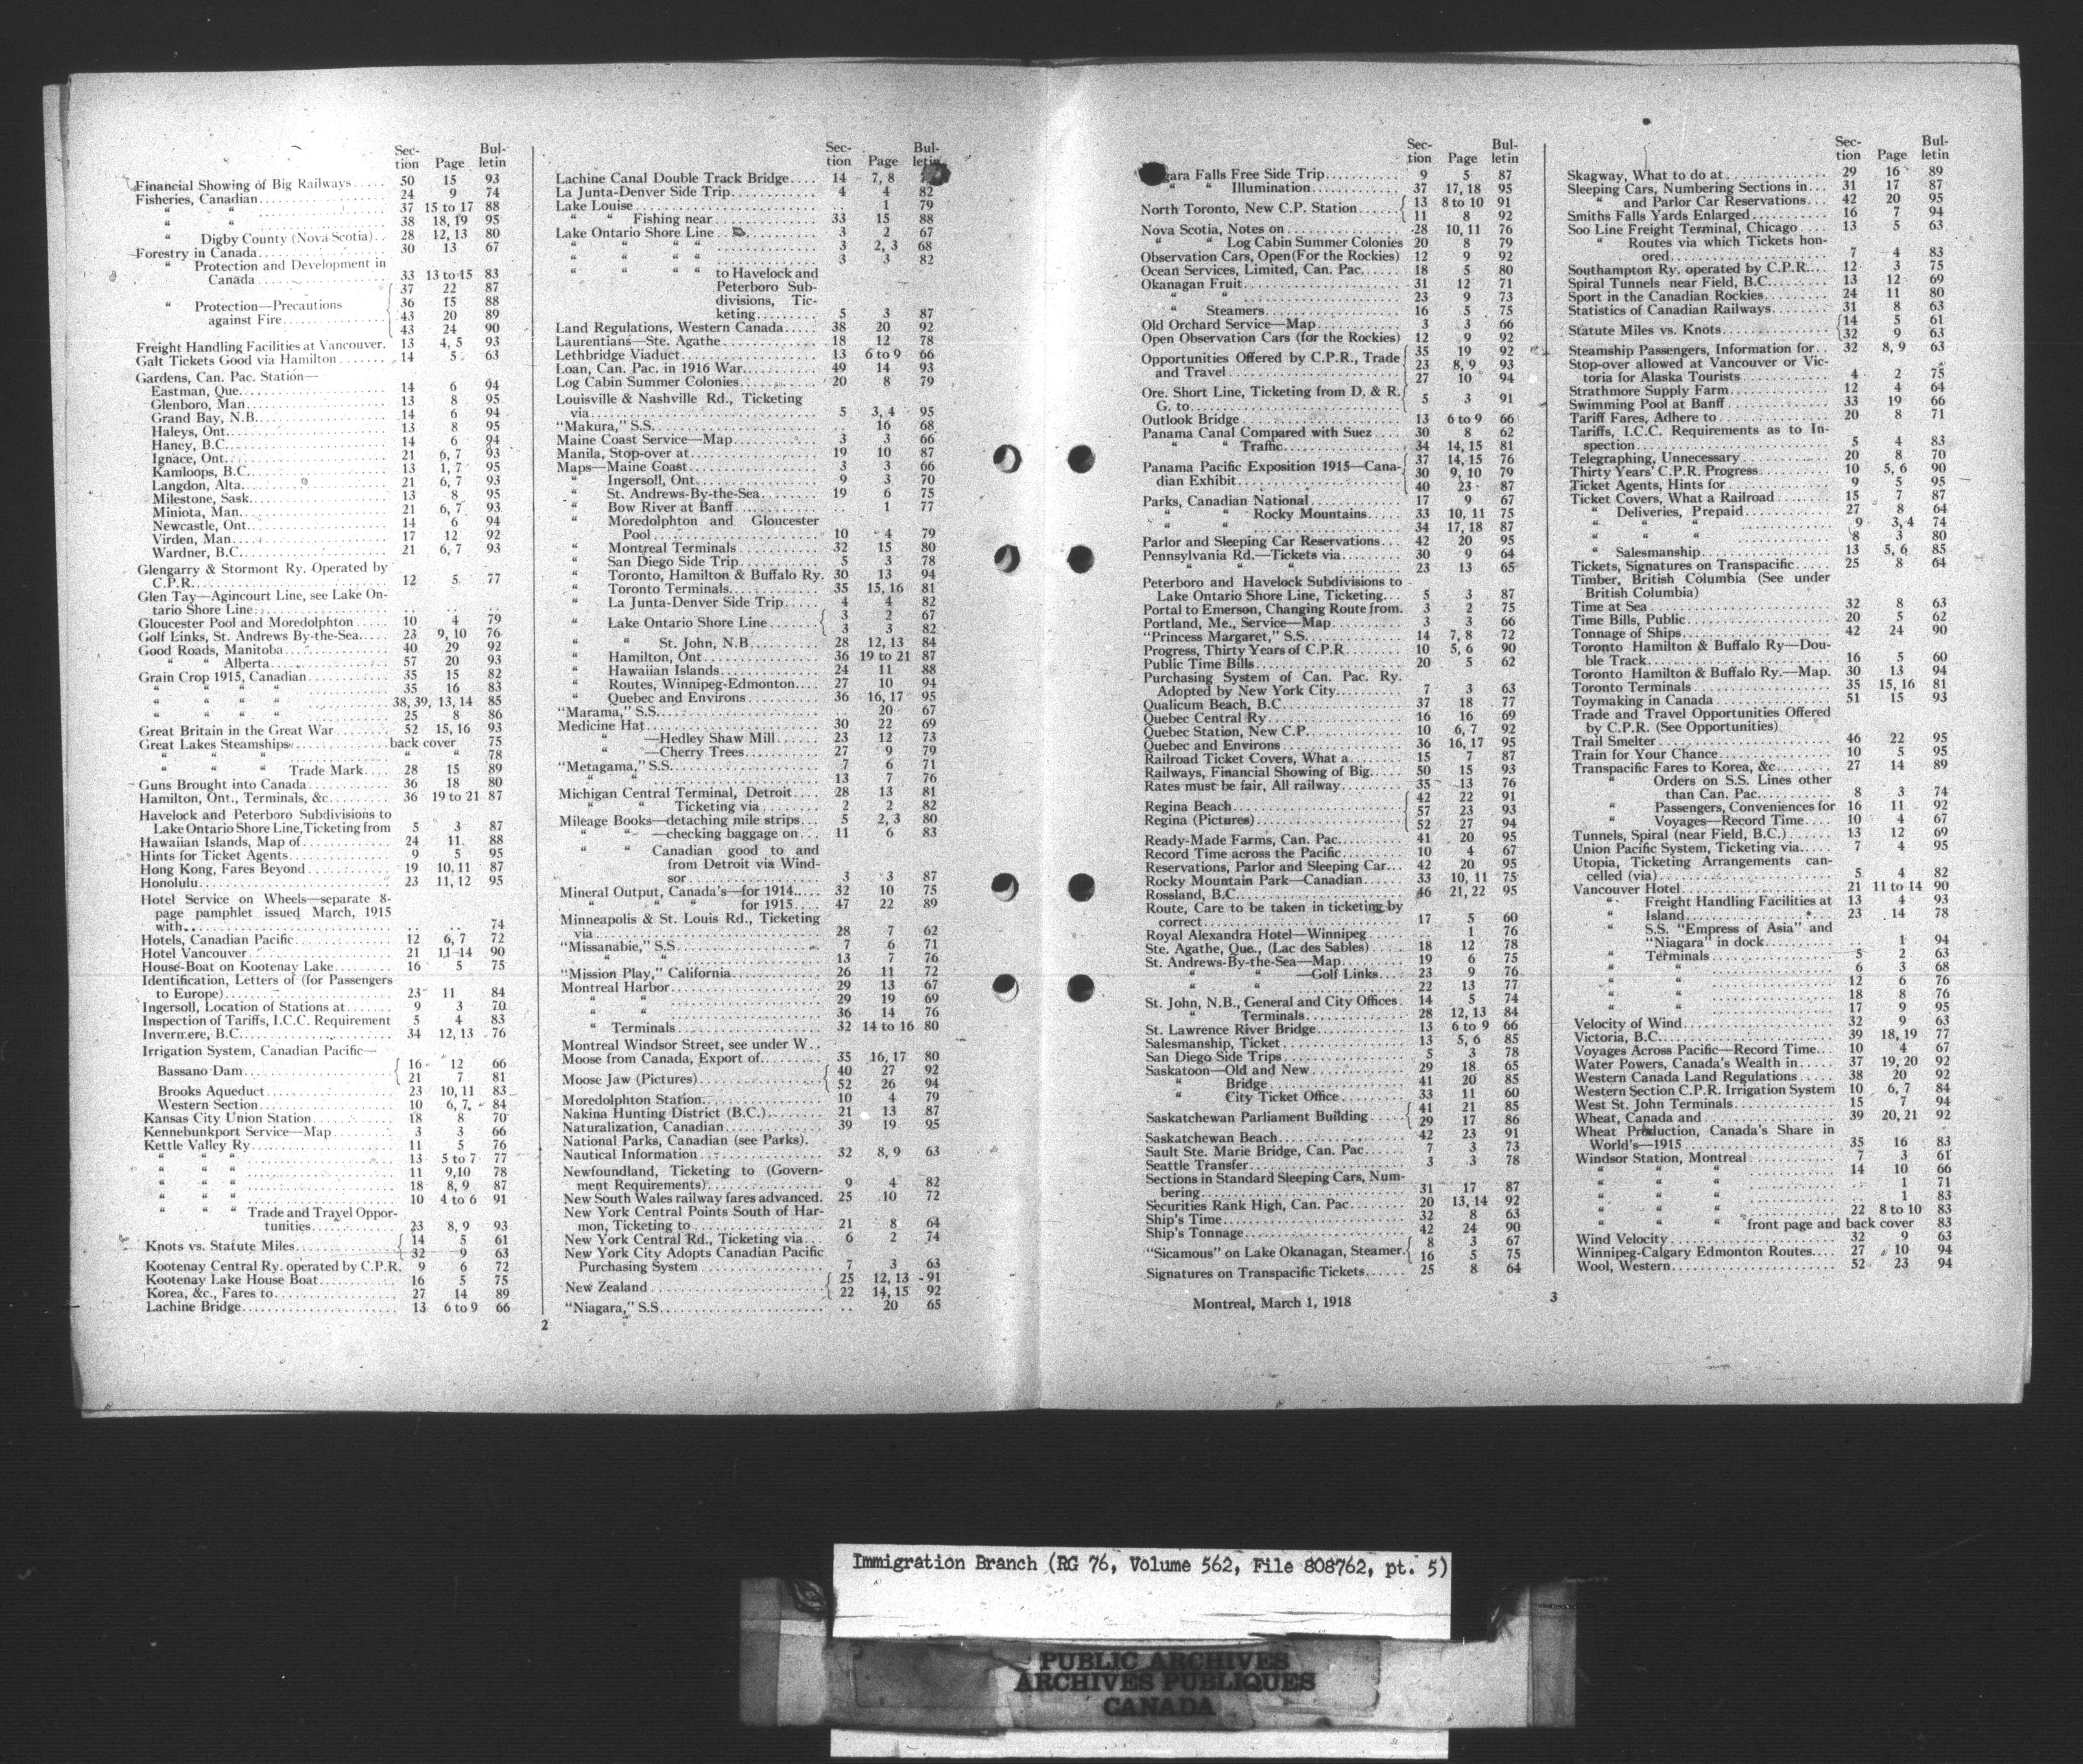 Sec-
tion Page Bul-
letin
Financial Showing of Big Railways..... 50 15 93
Fisheries, Canadian.................... 24 9 74
“ “ .................... 37 15 to 17 88
“ “ .................... 38 18, 19 95
“ Digby County (Nova Scotia).. 28 12, 13 80
Forestry in Canada.................... 30 13 67
“ Protection and Development in
Canada.................... 33 13 to 15 83
“ Protection—Precautions
against Fire.................... { 37 22 87
36 15 88
43 20 89
43 24 90
Freight Handling Facilities at Vancouver. 13 4, 5 93
Galt Tickets Good via Hamilton....... 14 5 63
Gardens, Can. Pac. Station—
Eastman, Que.................... 14 6 94
Glenboro, Man.................... 13 8 95
Grand Bay, N.B.................... 14 6 94
Haleys, Ont.................... 13 8 95
Haney, B.C.................... 14 6 94
Ignace, Ont.................... 21 6, 7 93
Kamloops, B.C.................... 13 1, 7 95
Langdon, Alta.................... 21 6, 7 93
Milestone, Sask.................... 13 8 95
Miniota, Man.................... 21 6, 7 93
Newcastle, Ont.................... 14 6 94
Virden, Man.................... 17 12 92
Wardner, B.C.................... 21 6, 7 93
Glengarry & Stormont Ry. Operated by
C.P.R.................... 12 5 77
Glen Tay—Agincourt Line, see Lake On-
tario Shore Line.................... .. .. ..
Gloucester Pool and Moredolphton..... 10 4 79
Golf Links, St. Andrews By-the-Sea..... 23 9, 10 76
Good Roads, Manitoba.................... 40 29 92
“ “ Alberta.................... 57 20 93
Grain Crop 1915, Canadian............ 35 15 82
“ “ “ “ ............ 35 16 83
“ “ “ “ 38, 39, 13, 14 85
“ “ “ “ ............ 25 8 86
Great Britain in the Great War........ 52 15, 16 93
Great Lakes Steamships...............back cover 75
“ “ “ ............... “ “ 78
“ “ “ Trade Mark.... 28 15 89
Guns Brought into Canada............ 36 18 80
Hamilton, Ont., Terminals, &c......... 36 19 to 21 87
Havelock and Peterboro Subdivisions to
Lake Ontario Shore Line, Ticketing from 5 3 87
Hawaiian Islands, Map of............ 24 11 88
Hints for Ticket Agents............... 9 5 95
Hong Kong, Fares Beyond............ 19 10, 11 87
Honolulu.................... 23 11, 12 95
Hotel Service on Wheels—separate 8-
page pamphlet issued March, 1915
with.................... .. .. 74
Hotels, Canadian Pacific............... 12 6, 7 72
Hotel Vancouver.................... 21 11-14 90
House-Boat on Kootenay Lake........ 16 5 75
Identification, Letters of (for Passengers
to Europe).................... 23 11 84
Ingersoll, Location of Stations at....... 9 3 70
Inspection of Tariffs, I.C.C. Requirement 5 4 83
Invermere, B.C.................... 34 12, 13 76
Irrigation System, Canadian Pacific—
Bassano Dam.................... { 16 12 66
21 7 81
Brooks Aqueduct.................... 23 10, 11 83
Western Section.................... 10 6, 7 84
Kansas City Union Station............ 18 8 70
Kennebunkport Service—Map......... 3 3 66
Kettle Valley Ry.................... 11 5 76
“ “ “ .................... 13 5 to 7 77
“ “ “ .................... 11 9, 10 78
“ “ “ .................... 18 8, 9 87
“ “ “ .................... 10 4 to 6 91
“ “ “ Trade and Travel Oppor-
tunities............ 23 8, 9 93
Knots vs. Statute Miles............... { 14 5 61
32 9 63
Kootenay Central Ry. operated by C.P.R. 9 6 72
Kootenay Lake House Boat............ 16 5 75
Korea, &c., Fares to.................... 27 14 89
Lachine Bridge.................... 13 6 to 9 66
2
Sec-
tion Page Bul-
letin
Lachine Canal Double Track Bridge.... 14 7, 8
La Junta-Denver Side Trip............ 4 4 82
Lake Louise.................... .. 1 79
“ “ Fishing near............ 33 15 88
Lake Ontario Shore Line............... 3 2 67
“ “ “ “ ............... 3 2, 3 68
“ “ “ “ ............... 3 3 82
“ “ “ “ to Havelock and
Peterboro Sub-
divisions, Tic-
keting......... 5 3 87
Land Regulations, Western Canada..... 38 20 92
Laurentians—Ste. Agathe............ 18 12 78
Lethbridge Viaduct.................... 13 6 to 9 66
Loan, Can. Pac. in 1916 War......... 49 14 93
Log Cabin Summer Colonies............ 20 8 79
Louisville & Nashville Rd., Ticketing
via.................... 5 3, 4 95
“Makura,” S.S.................... .. 16 68
Maine Coast Service—Map............ 3 3 66
Manila, Stop-over at.................... 19 10 87
Maps—Maine Coast.................... 3 3 66
“ Ingersoll, Ont.................... 9 3 70
“ St. Andrews-By-the-Sea......... 19 6 75
“ Bow River at Banff............ .. 1 77
“ Moredolphton and Gloucester
Pool.................... 10 4 79
“ Montreal Terminals............ 32 15 80
“ San Diego Side Trip............ 5 3 78
“ Toronto, Hamilton & Buffalo Ry. 30 13 94
“ Toronto Terminals............ 35 15, 16 81
“ La Junta-Denver Side Trip..... 4 4 82
“ Lake Ontario Shore Line........ { 3 2 67
3 3 82
“ “ St. John, N.B............ 28 12, 13 84
“ Hamilton, Ont.................... 36 19 to 21 87
“ Hawaiian Islands............ 24 11 88
“ Routes, Winnipeg-Edmonton.... 27 10 94
“ Quebec and Environs............ 36 16, 17 95
“Marama,” S.S.................... 20 67
Medicine Hat.................... 30 22 69
“ —Hedley Shaw Mill....... 23 12 73
“ —Cherry Trees............ 27 9 79
“Metagama,” S.S.................... 7 6 71
“ “ .................... 13 7 76
Michigan Central Terminal, Detroit.... 28 13 81
“ “ Ticketing via........ 2 2 82
Mileage Books—detaching mile strips... 5 2, 3 80
“ “ —checking baggage on... 11 6 83
“ “ Canadian good to and
from Detroit via Wind-
sor.................... 3 3 87
Mineral Output, Canada's—for 1914..... 32 10 75
“ “ “ for 1915.... 47 22 89
Minneapolis & St. Louis Rd., Ticketing
via.................... 28 7 62
“Missanabie,” S.S.................... 7 6 71
“ “ .................... 13 7 76
“Mission Play,” California............ 26 11 72
Montreal Harbor.................... 29 13 67
“ “ .................... 29 19 69
“ “ .................... 36 14 76
“ Terminals.................... 32 14 to 16 80
Montreal Windsor Street, see under W..
Moose from Canada, Export of......... 35 16, 17 80
Moose Jaw (Pictures).................... { 40 27 92
52 26 94
Moredolphton Station.................... 10 4 79
Nakina Hunting District (B.C.)......... 21 13 87
Naturalization, Canadian............... 39 19 95
National Parks, Canadian (see Parks).
Nautical Information.................... 32 8, 9 63
Newfoundland, Ticketing to (Govern-
ment Requirements).................... 9 4 82
New South Wales railway fares advanced. 25 10 72
New York Central Points South of Har-
mon, Ticketing to.................... 21 8 64
New York Central Rd., Ticketing via... 6 2 74
New York City Adopts Canadian Pacific
Purchasing System.................... 7 3 63
New Zealand.................... { 25 12, 13 91
22 14, 15 92
“Niagara,” S.S.................... .. 20 65
Sec-
tion Page Bul-
letin
gara Falls Free Side Trip............ 9 5 87
“ “ Illumination............ 37 17, 18 95
North Toronto, New C.P. Station...... { 13 8 to 10 91
11 8 92
Nova Scotia, Notes on.................... 28 10, 11 76
“ “ Log Cabin Summer Colonies 20 8 79
Observation Cars, Open (For the Rockies) 12 9 92
Ocean Services, Limited, Can. Pac...... 18 5 80
Okanagan Fruit.................... 31 12 71
“ “ .................... 23 9 73
“ Steamers.................... 16 5 75
Old Orchard Service—Map............ 3 3 66
Open Observation Cars (for the Rockies) 12 9 92
Opportunities Offered by C.P.R., Trade
and Travel.................... { 35 19 92
23 8, 9 93
27 10 94
Ore. Short Line, Ticketing from D. & R.
G. to.................... { 5 3 91
Outlook Bridge.................... 13 6 to 9 66
Panama Canal Compared with Suez.... 30 8 62
“ “ Traffic.................... 34 14, 15 81
Panama Pacific Exposition 1915—Cana-
dian Exhibit.................... { 37 14, 15 76
30 9, 10 79
40 23 87
Parks, Canadian National............... 17 9 67
“ “ Rocky Mountains..... 33 10, 11 75
“ “ “ “ ..... 34 17, 18 87
Parlor and Sleeping Car Reservations... 42 20 95
Pennsylvania Rd.—Tickets via......... 30 9 64
“ “ “ ......... 23 13 65
Peterboro and Havelock Subdivisions to
Lake Ontario Shore Line, Ticketing... 5 3 87
Portal to Emerson, Changing Route from. 3 2 75
Portland, Me., Service—Map......... 3 3 66
“Princess Margaret,” S.S............... 14 7, 8 72
Progress, Thirty Years of C.P.R........ 10 5, 6 90
Public Time Bills.................... 20 5 62
Purchasing System of Can. Pac. Ry.
Adopted by New York City......... 7 3 63
Qualicum Beach, B.C.................... 37 18 77
Quebec Central Ry.................... 16 16 69
Quebec Station, New C.P............... 10 6, 7 92
Quebec and Environs.................... 36 16, 17 95
Railroad Ticket Covers, What a........ 15 7 87
Railways, Financial Showing of Big..... 50 15 93
Rates must be fair, All railway......... 35 13 76
Regina Beach.................... { 42 22 91
Regina (Pictures).................... 57 23 93
52 27 94
Ready-Made Farms, Can. Pac......... 41 20 95
Record Time across the Pacific......... 10 4 67
Reservations, Parlor and Sleeping Car... 42 20 95
Rocky Mountain Park—Canadian...... 33 10, 11 75
Rossland, B.C.................... 46 21, 22 95
Route, Care to be taken in ticketing by
correct.................... 17 5 60
Royal Alexandra Hotel—Winnipeg..... .. 1 76
Ste. Agathe, Que., (Lac des Sables)..... 18 12 78
St. Andrews-By-the-Sea—Map......... 19 6 75
“ “ —Golf Links.... 23 9 76
“ “ .................... 22 13 77
St. John, N.B., General and City Offices. 14 5 74
“ Terminals.................... 28 12, 13 84
St. Lawrence River Bridge............... 13 6 to 9 66
Salesmanship, Ticket.................... 13 5, 6 85
San Diego Side Trips.................... 5 3 78
Saskatoon—Old and New............... 29 18 65
“ Bridge.................... 41 20 85
“ City Ticket Office............ 33 11 60
Saskatchewan Parliament Building..... { 41 21 85
29 17 86
Saskatchewan Beach.................... 42 23 91
Sault Ste. Marie Bridge, Can. Pac...... 7 3 73
Seattle Transfer.................... 3 3 78
Sections in Standard Sleeping Cars, Num-
bering.................... 31 17 87
Securities Rank High, Can. Pac........ 20 13, 14 92
Ship's Time.................... 32 8 63
Ship's Tonnage.................... 42 24 90
“Sicamous” on Lake Okanagan, Steamer. { 8 3 67
16 5 75
Signatures on Transpacific Tickets...... 25 8 64
Montreal, March 1, 1918
Sec-
tion Page Bul-
letin
Skagway, What to do at............... 29 16 89
Sleeping Cars, Numbering Sections in... 31 17 87
“ and Parlor Car Reservations... 42 20 95
Smiths Falls Yards Enlarged............ 16 7 94
Soo Line Freight Terminal, Chicago.... 13 5 63
“ Routes via which Tickets hon-
ored.................... 7 4 83
Southampton Ry. operated by C.P.R.... 12 3 75
Spiral Tunnels near Field, B.C......... 13 12 69
Sport in the Canadian Rockies......... 24 11 80
Statistics of Canadian Railways......... 31 8 63
Statute Miles vs. Knots............... { 14 5 61
32 9 63
Steamship Passengers, Information for.. 32 8, 9 63
Stop-over allowed at Vancouver or Vic-
toria for Alaska Tourists............ 4 2 75
Strathmore Supply Farm............... 12 4 64
Swimming Pool at Banff............... 33 19 66
Tariff Fares, Adhere to............... 20 8 71
Tariffs, I.C.C. Requirements as to In-
spection.................... 5 4 83
Telegraphing, Unnecessary............ 20 8 70
Thirty Years' C.P.R. Progress......... 10 5, 6 90
Ticket Agents, Hints for............... 9 5 95
Ticket Covers, What a Railroad........ 15 7 87
“ Deliveries, Prepaid............ 27 8 64
“ “ “ ............ 9 3, 4 74
“ “ “ ............ 8 3 80
“ Salesmanship.................... 13 5, 6 85
Tickets, Signatures on Transpacific..... 25 8 64
Timber, British Columbia (See under
British Columbia)
Time at Sea.................... 32 8 63
Time Bills, Public.................... 20 5 62
Tonnage of Ships.................... 42 24 90
Toronto Hamilton & Buffalo Ry—Dou-
ble Track.................... 16 5 60
Toronto Hamilton & Buffalo Ry.—Map. 30 13 94
Toronto Terminals.................... 35 15, 16 81
Toymaking in Canada.................... 51 15 93
Trade and Travel Opportunities Offered
by C.P.R. (See Opportunities)
Trail Smelter.................... 46 22 95
Train for Your Chance............... 10 5 95
Transpacific Fares to Korea, &c........ 27 14 89
“ Orders on S.S. Lines other
than Can. Pac............ 8 3 74
“ Passengers, Conveniences for 16 11 92
“ Voyages—Record Time.... 10 4 67
Tunnels, Spiral (near Field, B.C.)...... 13 12 69
Union Pacific System, Ticketing via..... 7 4 95
Utopia, Ticketing Arrangements can-
celled (via).................... 5 4 82
Vancouver Hotel.................... 21 11 to 14 90
“ Freight Handling Facilities at 13 4 93
“ Island.................... 23 14 78
“ S.S. “Empress of Asia” and
“Niagara” in dock......... .. 1 94
“ Terminals.................... 5 2 63
“ “ .................... 6 3 68
“ “ .................... 12 6 76
“ “ .................... 18 8 76
“ “ .................... 17 9 95
Velocity of Wind.................... 32 9 63
Victoria, B.C.................... 39 18, 19 77
Voyages Across Pacific—Record Time... 10 4 67
Water Powers, Canada's Wealth in..... 37 19, 20 92
Western Canada Land Regulations..... 38 20 92
Western Section C.P.R. Irrigation System 10 6, 7 84
West St. John Terminals............... 15 7 94
Wheat, Canada and.................... 39 20, 21 92
Wheat Production, Canada's Share in
World's—1915.................... 35 16 83
Windsor Station, Montreal............ 7 3 61
“ “ “ ............ 14 10 66
“ “ “ ............ .. 1 71
“ “ “ ............ .. 1 83
“ “ “ ............ 22 8 to 10 83
“ “ “ front page and back cover 83
Wind Velocity.................... 32 9 63
Winnipeg-Calgary Edmonton Routes.... 27 10 94
Wool, Western.................... 52 23 94
3
Immigration Branch (RG 76, Volume 562, File 808762, pt. 5)
PUBLIC ARCHIVES
ARCHIVES PUBLIQUES
CANADA